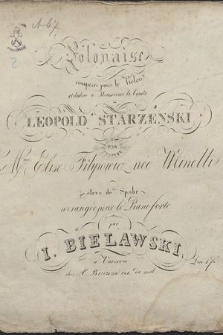 Polonaise
composée pour le Violon
et dediée à Monsieur le Comte
LEOPOLD STARZEŃSKI
PAR
Mme Elise Filipowicz née Minelli
élève de Spohr
arrangée pour le Piano forte
par
I. BIELAWSKI
à Varsovie
chez A. Brzezina